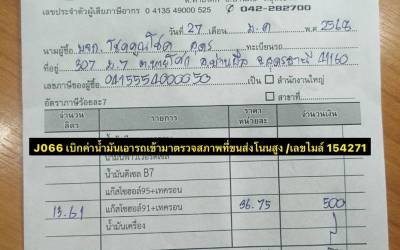 เลขประจำตัวผู้เสียภาษีอากร 0 4135 49000 525
✆ 042-282700
วันที่ 27 เดือน ม.ค พ.ศ 2568
นามผู้ซื้อ หจก. โชคคูณโชค อุดร ทะเบียนรถ
ที่อยู่ 307 ม.7 จ.อุดรธานี 41160
เลขภาษีของผู้ซื้อ เป็น สำนักงานใหญ่
อัตราภาษีร้อยละ7 สาขาที่
จำนวนลิตร รายการ ราคาหน่วยละ จำนวนเงิน
J066 เบิกค่าน้ำมันเอารถเข้ามาตรวจสภาพที่ขนส่งโนนสูง /เลขไมล์ 154271
น้ำมันดีเซล B7
แก๊สโซฮอล์95+เทครอน
13.61 แก๊สโซฮอล์91+เทครอน 36.75 500
น้ำมันเครื่อง